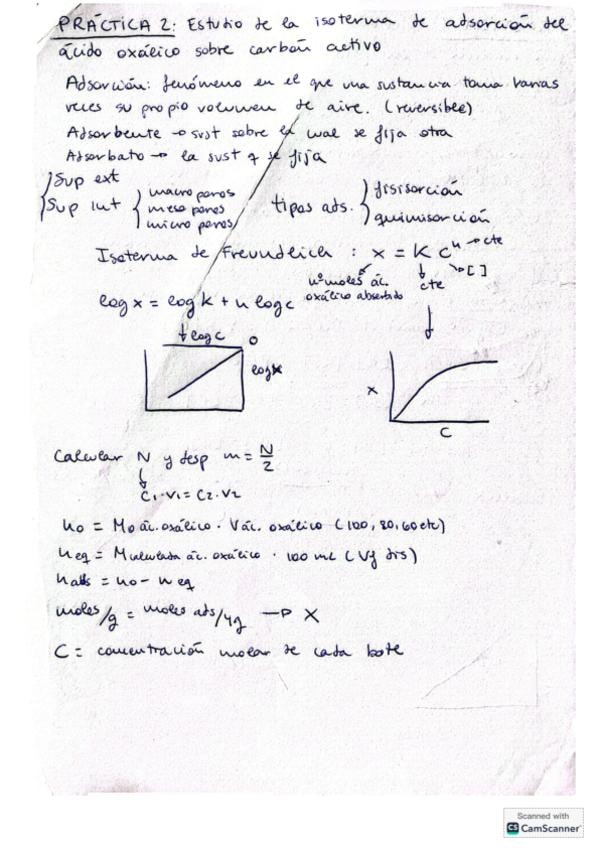 PRÁCTICA 2: Estudio de la isoterma de adsorción del
ácido oxálico sobre carbón activo
Adsorción: fenómeno en el que una sustancia toma varias
veces su propio volumen de aire. (reversible)
Adsorbente → sust sobre la cual se fija otra
Adsorbato → la sust q se fija
Sup ext
Sup int
macro poros
meso poros
micro poros
tipos ads.
fisisorción
quimisorción
Isoterma de Freundlich : x = K cⁿ → cte
nº moles ác.
oxálico absorbido
cte
[ ]
log x = log k + n log c
log c
0
log x
x
C
Calcular N y desp m = N/2
C1·V1 = C2·V2
n0 = M0 ác. oxálico · V ác. oxálico (100, 80, 60 etc)
neq = M calculada ác. oxálico · 100 mL (Vf dis)
nads = n0 - neq
moles/g = moles ads/4g → X
C = concentración molar de cada bote
Scanned with
CS CamScanner